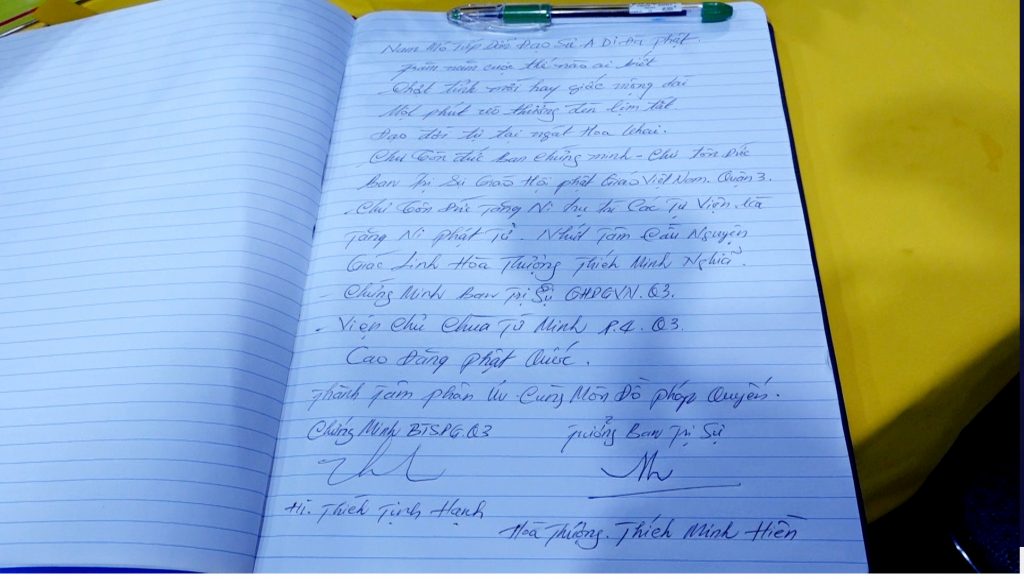 Nam Mô Tiếp Dẫn Đạo Sư A Di Đà Phật.
Trăm năm cuộc thế nào ai biết
Chợt tỉnh mới hay giấc mộng dài
Một phút vô thường đèn lịm tắt
Đạo đời tự tại ngát Hoa khai.
Chư Tôn đức Ban Chứng minh - Chư Tôn Đức
Ban Trị Sự Giáo Hội phật Giáo Việt Nam. Quận 3.
Chư Tôn Đức Tăng Ni trụ trì Các Tự Viện. và
Tăng Ni phật Tử. Nhứt Tâm Cầu Nguyện
Giác Linh Hòa Thượng Thích Minh Nghĩa.
- Chứng Minh Ban Trị Sự GHPGVN. Q3.
- Viện Chủ Chùa Từ Minh P.4. Q3.
Cao Đăng phật Quốc.
Thành Tâm phân Ưu Cùng Môn Đồ pháp Quyến.
Chứng Minh BTSPG.Q3 Trưởng Ban Trị Sự
Ht. Thích Tịnh Hạnh
Hòa Thượng. Thích Minh Hiền